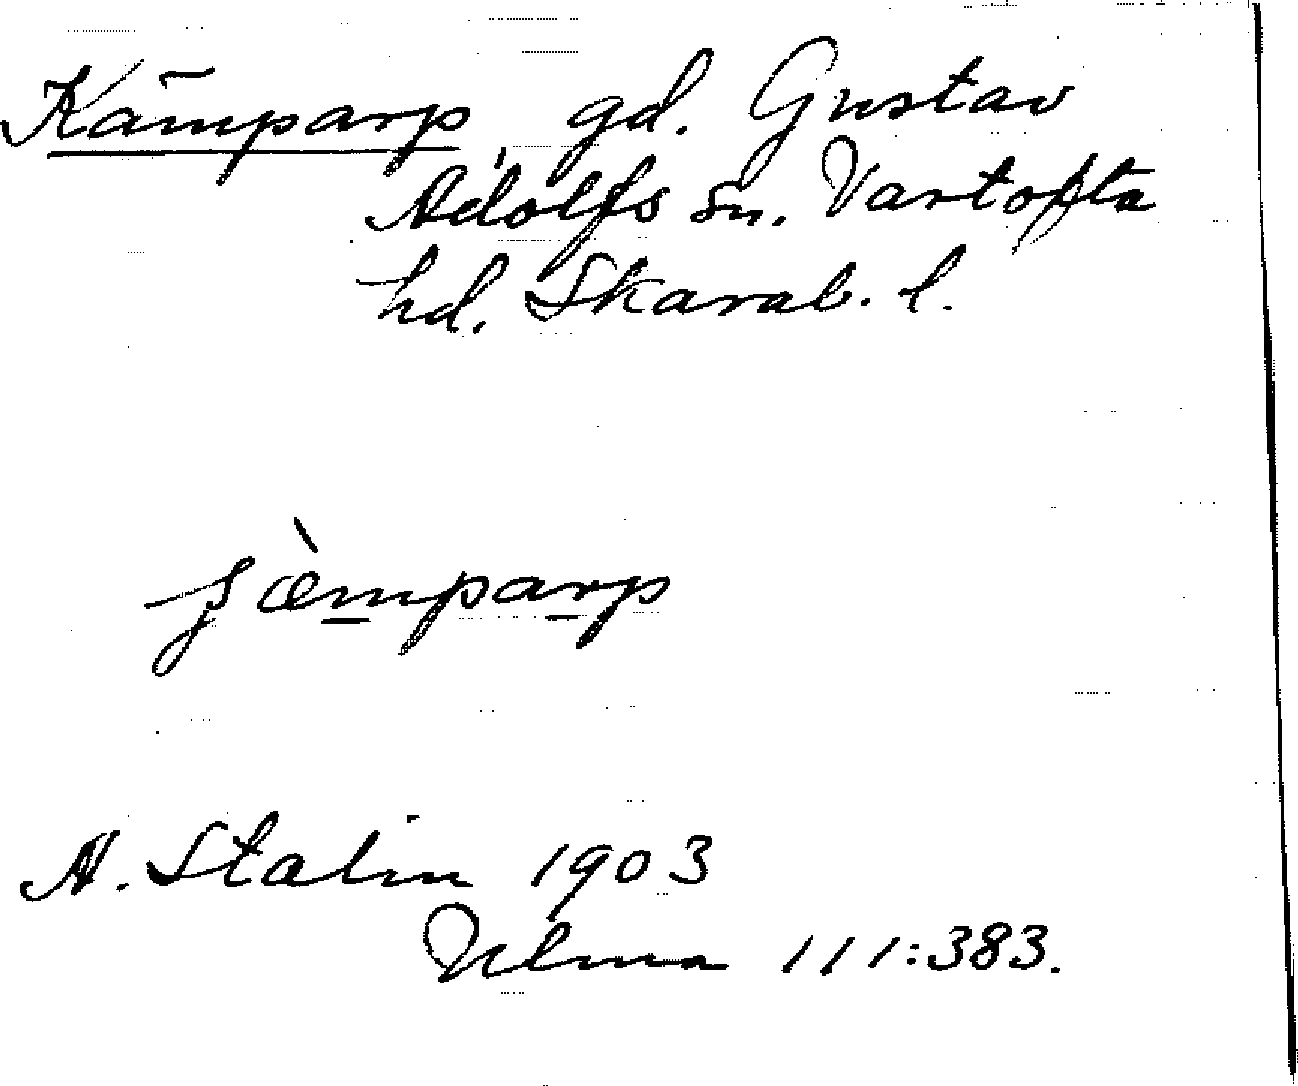 Kämparp, gd. Gustav
Adolfs sn. Vartofta
hd. Skarab. l.
A. Stalin 1903
Ulma 111:383.